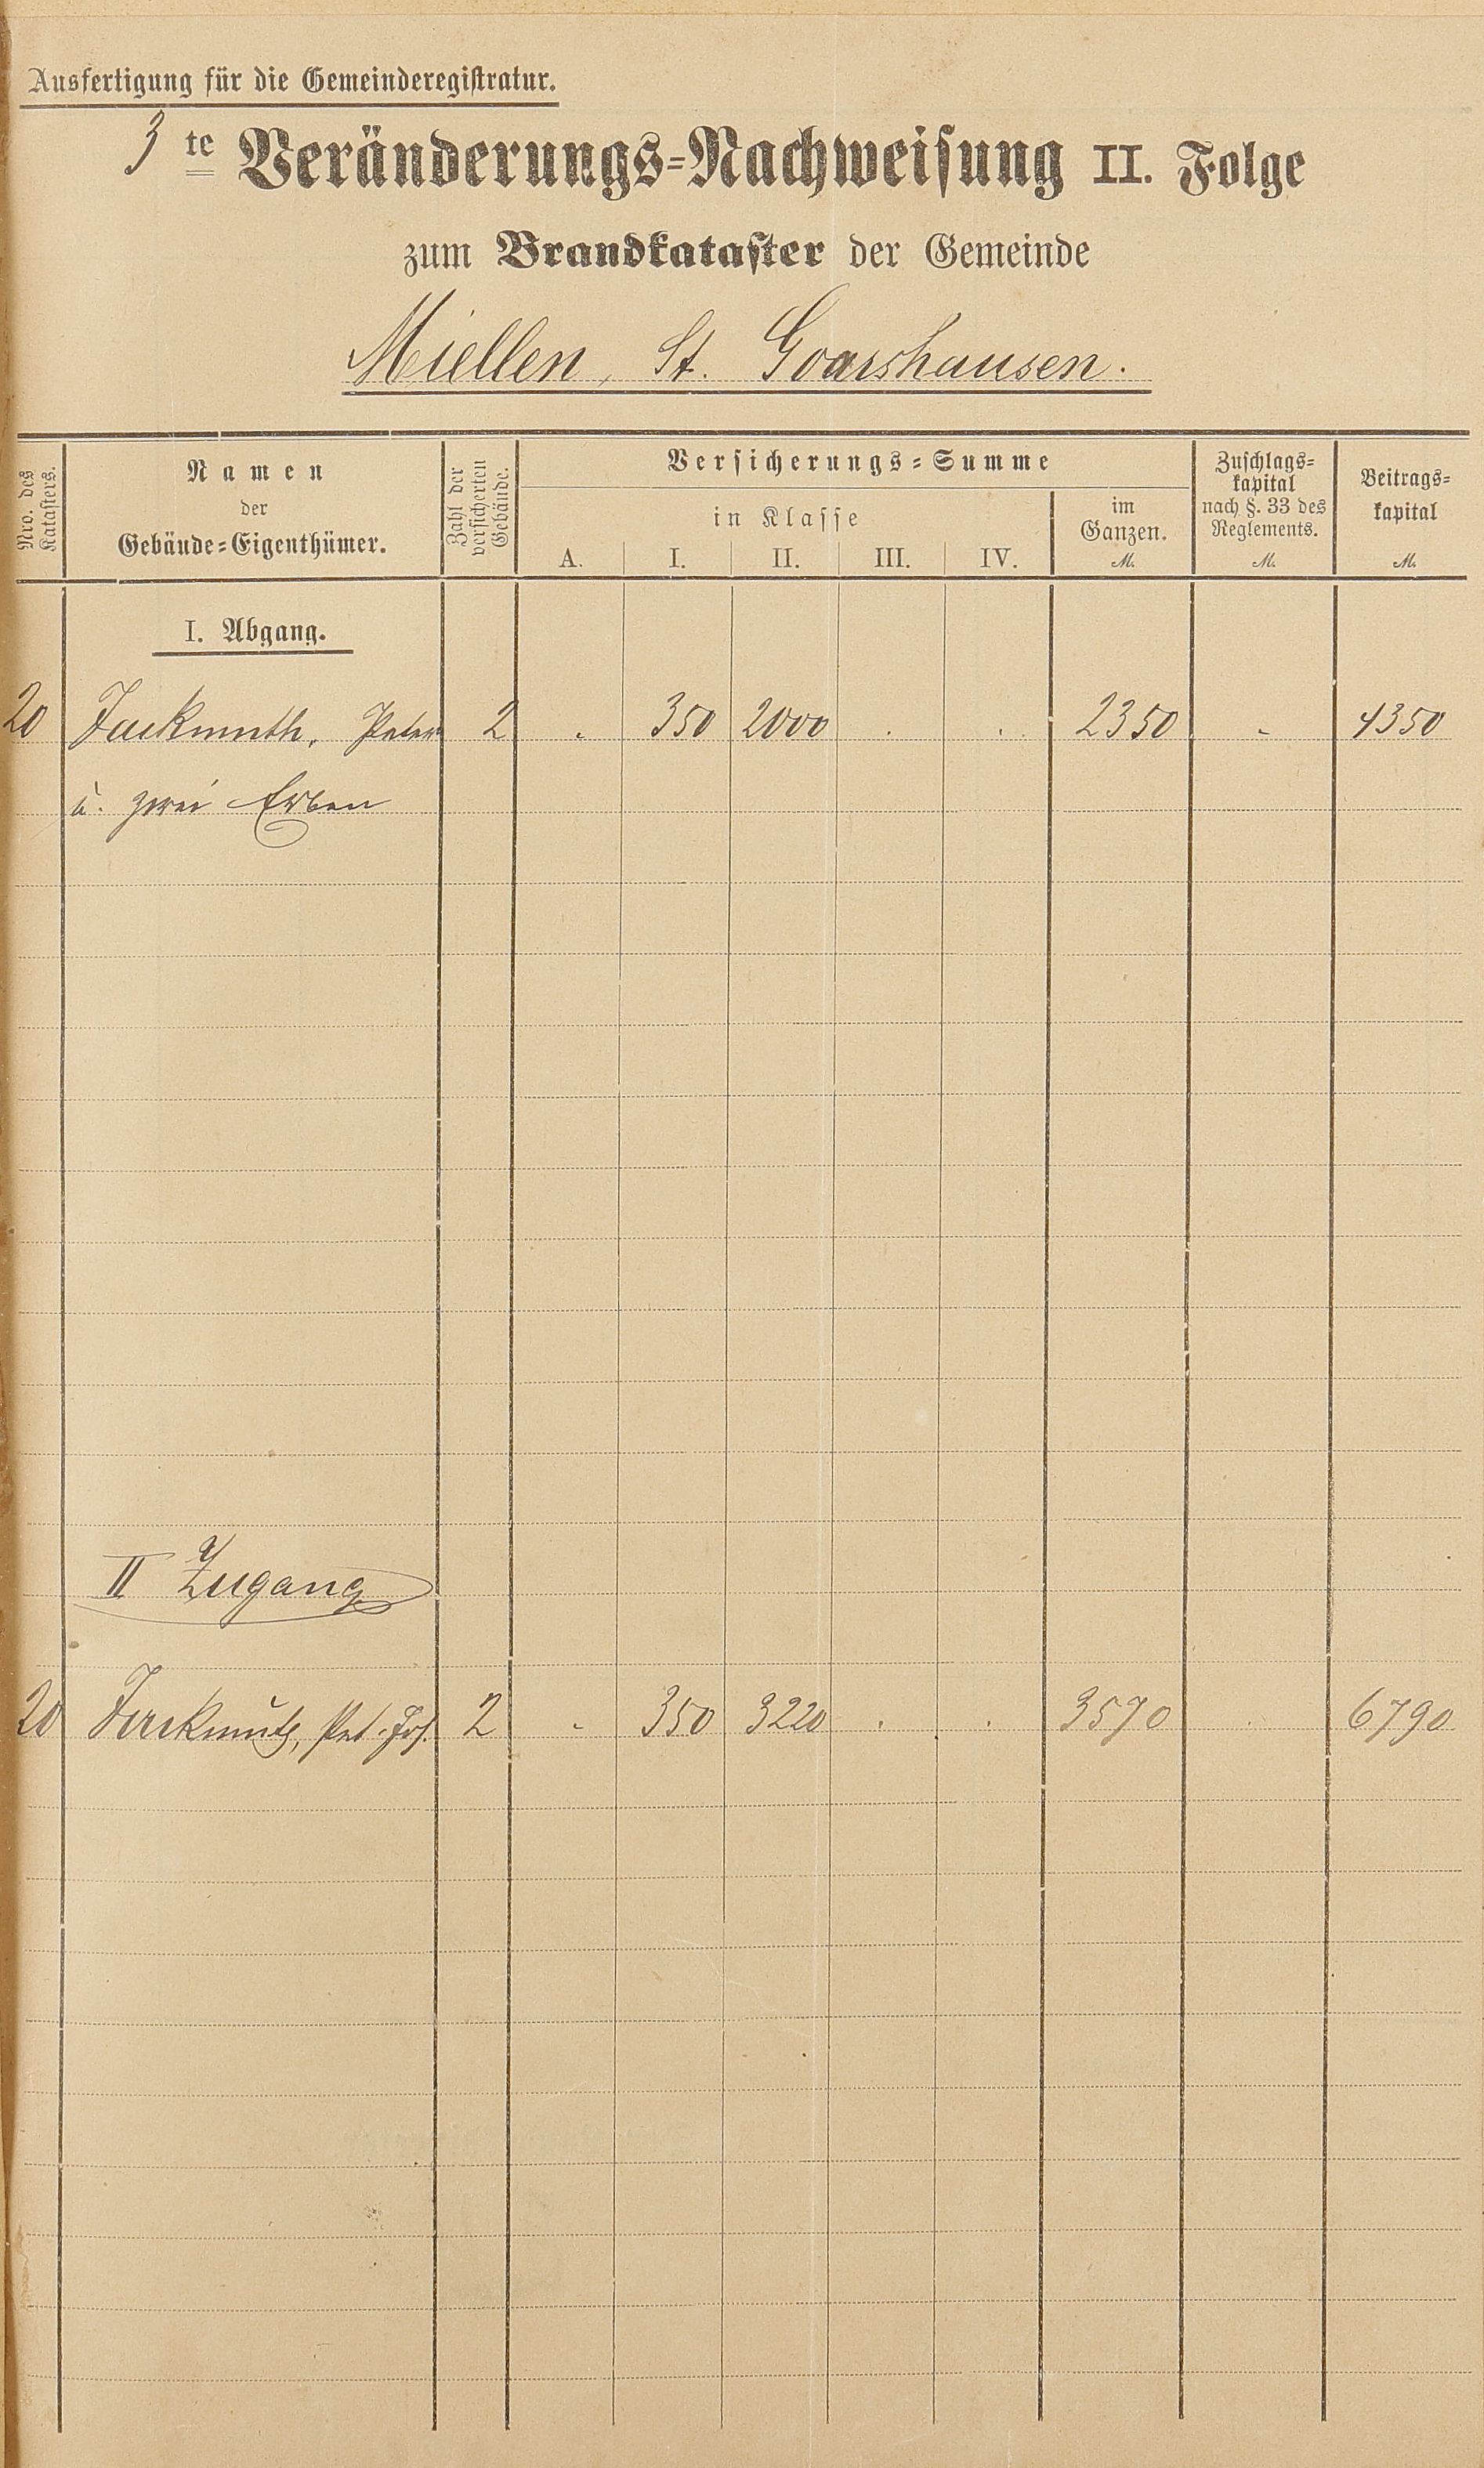 Ausfertigung für die Gemeinderegistratur.
3te Veränderungs-Nachweisung II. Folge
zum Brandkataster der Gemeinde
Miellen, St. Goarshausen.
Nro. des Katasters.
Namen
der
Gebäude-Eigenthümer.
Zahl der versicherten Gebäude.
Versicherungs-Summe
in Klasse
A. I. II. III. IV.
im Ganzen. M.
Zuschlags-kapital nach §. 33 des Reglements. M.
Beitrags-kapital M.
I. Abgang.
20 Fackmuth, Peter 2 . 350 2000 . . 2350 . 4350
u. zwei Erben
II Zugang
20 Pet. Jos. 2 . 350 3220 . . 3570 . 6790